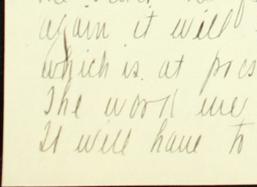 again it will
which is at pres
The work we
It will have to